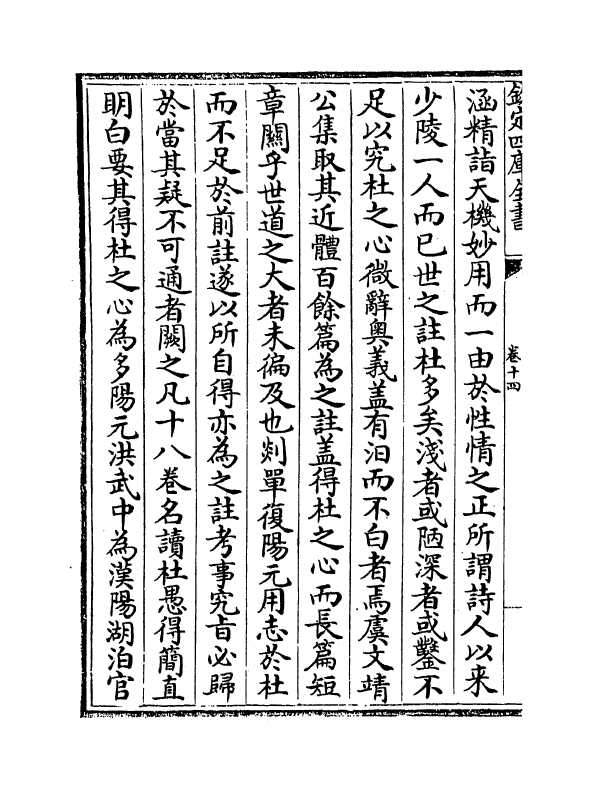 欽定四庫全書
卷十四
涵精詣天機妙用而一由於性情之正所謂詩人以来
少陵一人而已世之註杜多矣淺者或陋深者或鑿不
足以究杜之心微辭奥義盖有汩而不白者焉虞文靖
公集取其近體百餘篇為之註盖得杜之心而長篇短
章關乎世道之大者未徧及也剡單復陽元用志於杜
而不足於前註遂以所自得亦為之註考事究旨必歸
於當其疑不可通者闕之凡十八卷名讀杜愚得簡直
明白要其得杜之心為多陽元洪武中為漢陽湖泊官